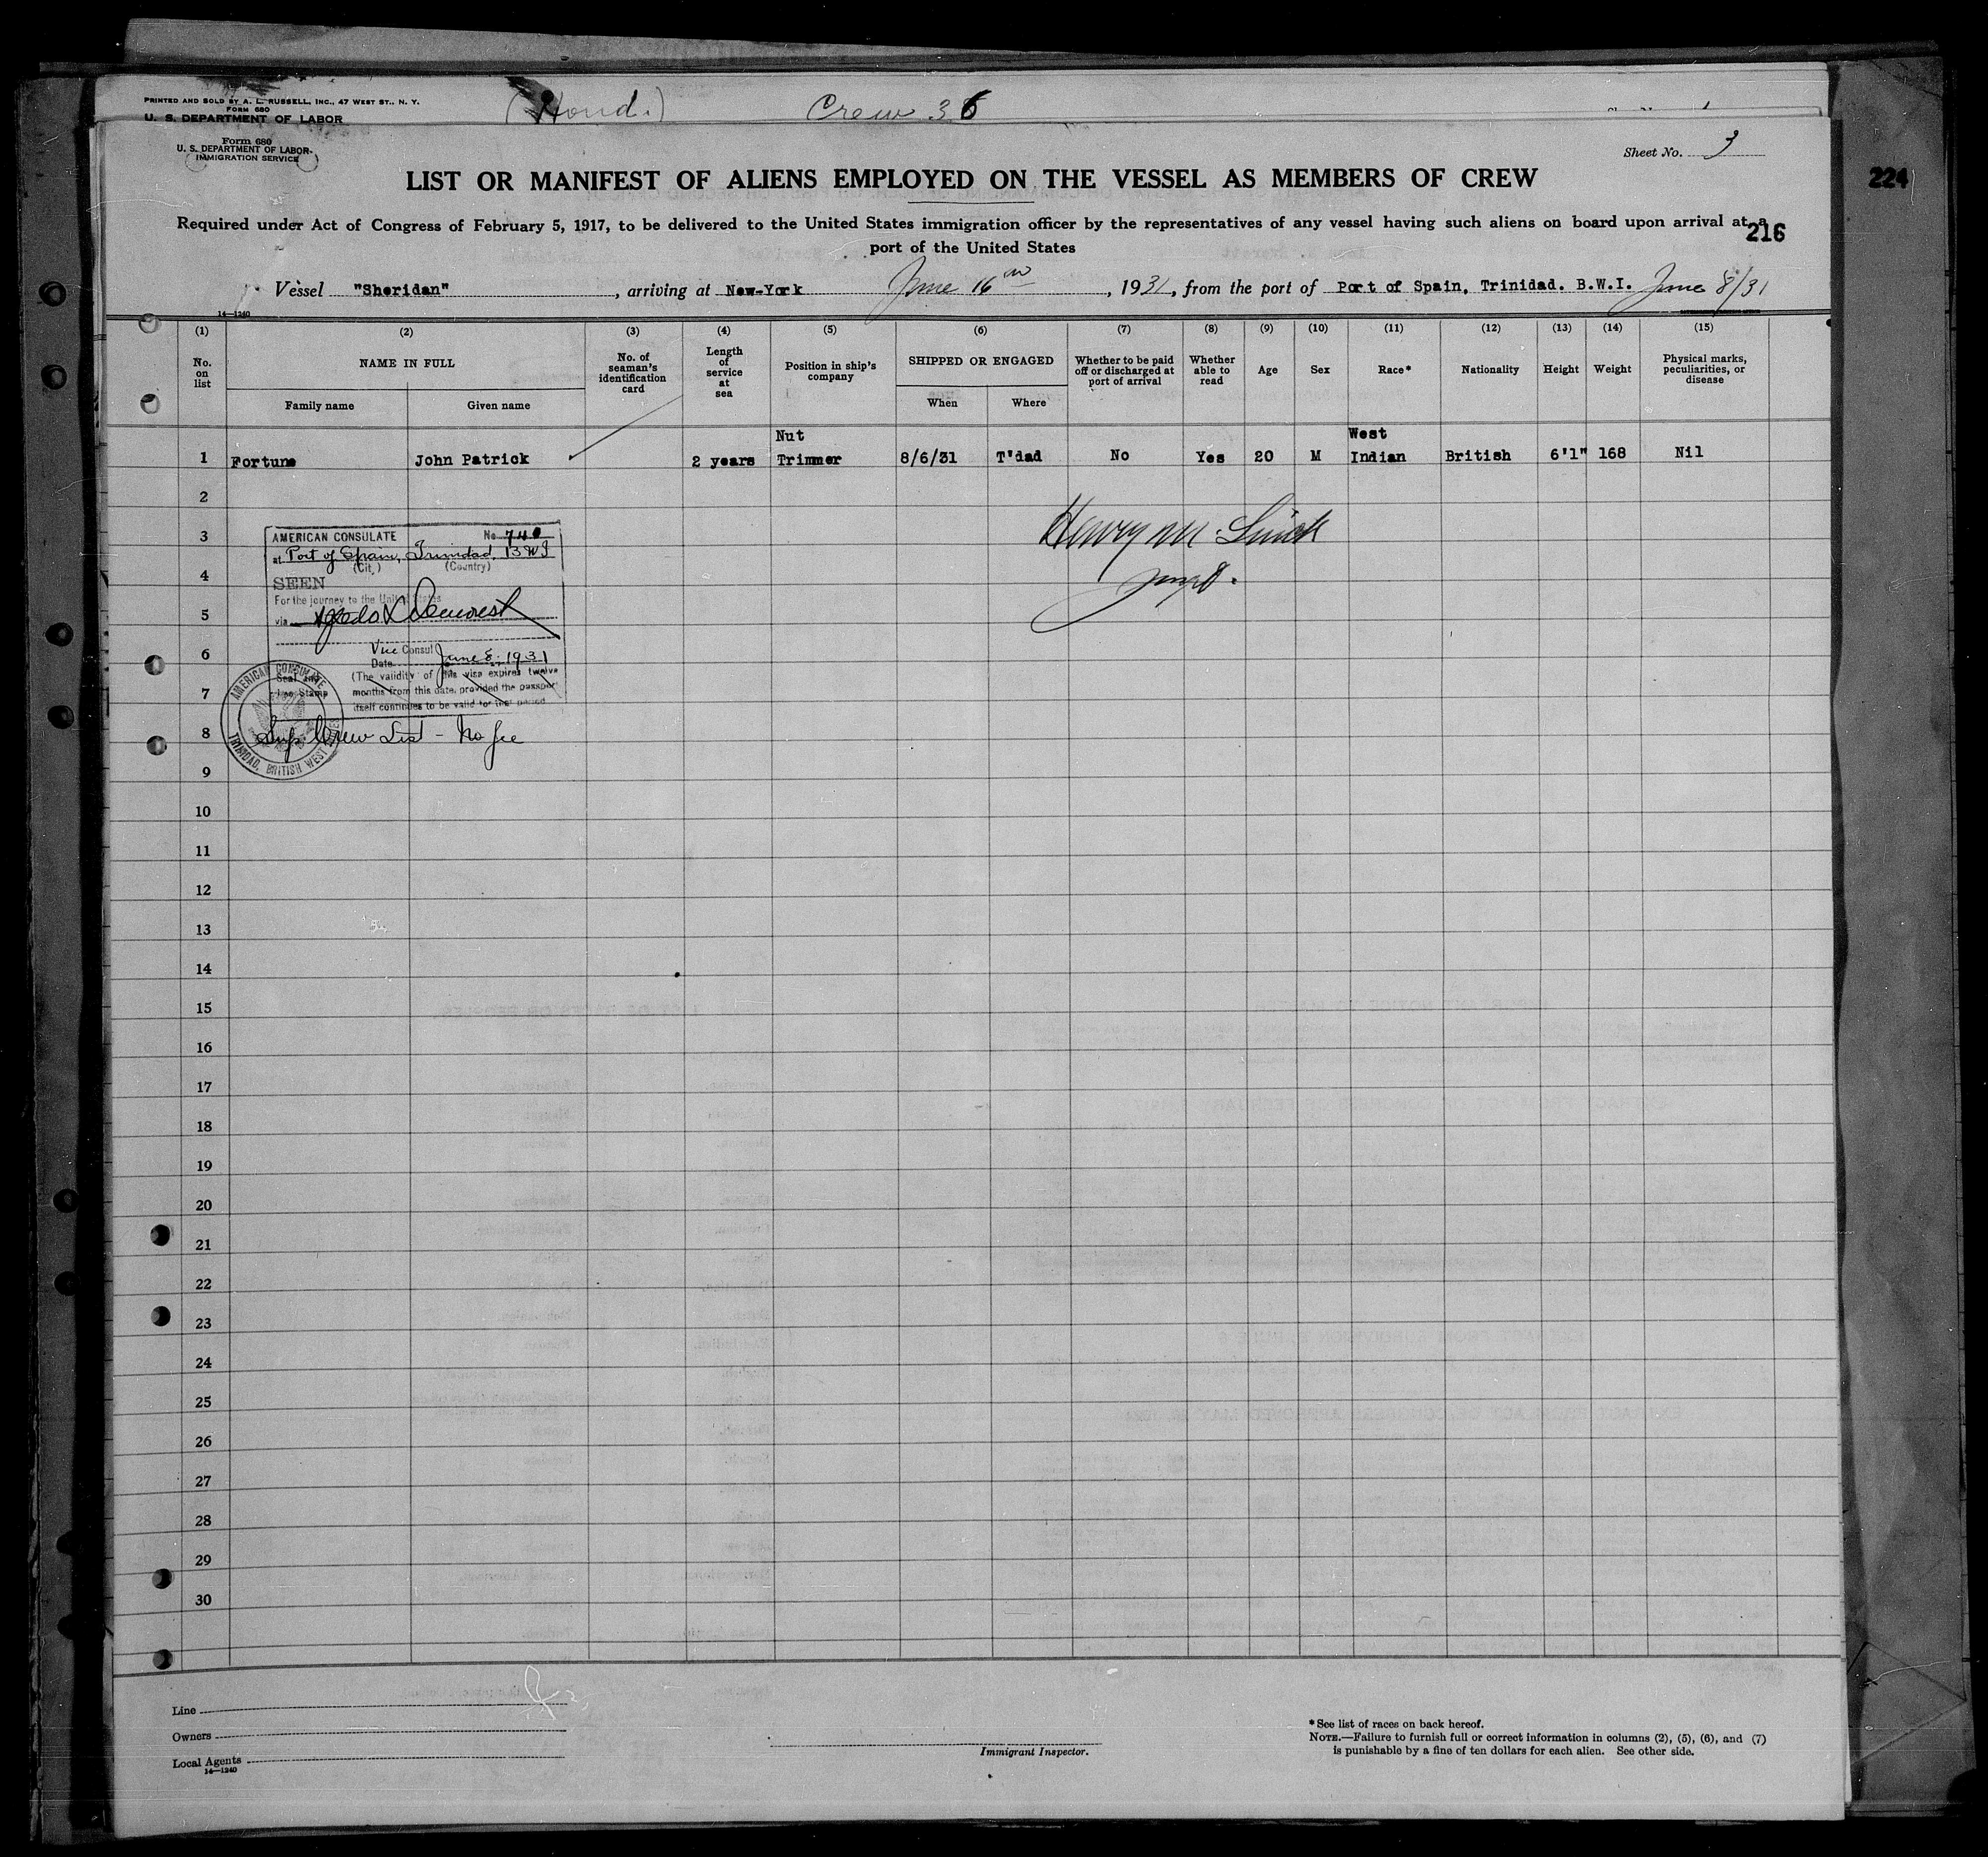 PRINTED AND SOLD BY A. L. RUSSELL, INC., 47 WEST ST., N. Y.
FORM 680
U. S. DEPARTMENT OF LABOR
(Hond.) Crew 36
Form 680
U. S. DEPARTMENT OF LABOR
(IMMIGRATION SERVICE)
Sheet No. 3
224
LIST OR MANIFEST OF ALIENS EMPLOYED ON THE VESSEL AS MEMBERS OF CREW
Required under Act of Congress of February 5, 1917, to be delivered to the United States immigration officer by the representatives of any vessel having such aliens on board upon arrival at a
port of the United States
216
Vessel "Sheridan", arriving at New-York June 16th, 1931, from the port of Port of Spain, Trinidad. B.W.I. June 8/31
14—1240
(1) (2) (3) (4) (5) (6) (7) (8) (9) (10) (11) (12) (13) (14) (15)
No. on list
NAME IN FULL
Family name
Given name
No. of seaman's identification card
Length of service at sea
Position in ship's company
SHIPPED OR ENGAGED
When
Where
Whether to be paid off or discharged at port of arrival
Whether able to read
Age
Sex
Race*
Nationality
Height
Weight
Physical marks, peculiarities, or disease
Nut West
1 Fortune John Patrick 2 years Trimmer 8/6/31 T'dad No Yes 20 M Indian British 6'1" 168 Nil
2
3
4
5
6
7
8
9
10
11
12
13
14
15
16
17
18
19
20
21
22
23
24
25
26
27
28
29
30
AMERICAN CONSULATE No. 740
at Port of Spain, Trinidad BWI
(City) (Country)
SEEN
For the journey to the United States
via
Vice Consul
Date June 8, 1931
(The validity of this visa expires twelve
months from this date, provided the passport
itself continues to be valid for that period
Seal and
Fee Stamp
AMERICAN CONSULATE
TRINIDAD, BRITISH WEST INDIES
Sup. Crew List - No fee
Line
Owners
Local Agents
14—1240
Immigrant Inspector.
*See list of races on back hereof.
NOTE.—Failure to furnish full or correct information in columns (2), (5), (6), and (7)
is punishable by a fine of ten dollars for each alien. See other side.